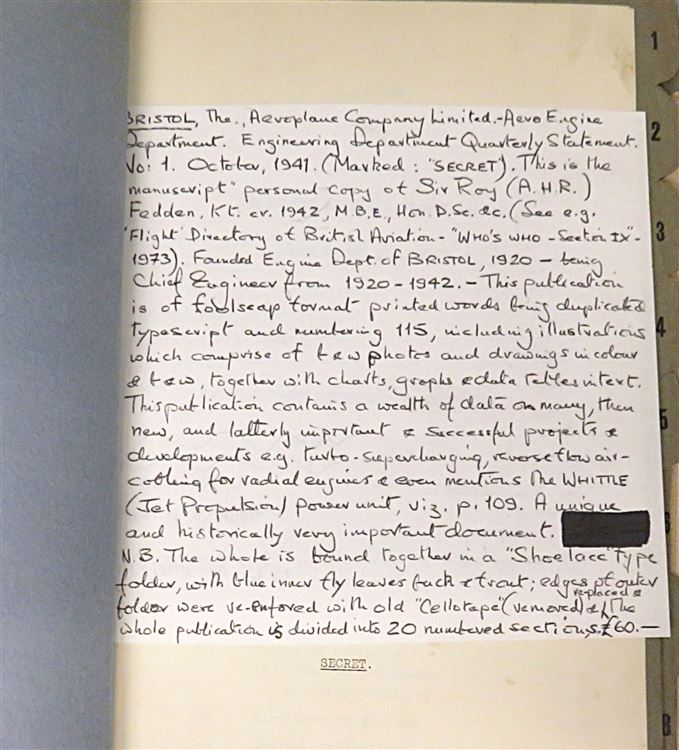 BRISTOL, The., Aeroplane Company Limited.-Aero Engine
Department. Engineering Department Quarterly Statement.
No: 1. October, 1941. (Marked: "SECRET"). This is the
manuscript" personal copy of Sir Roy (A.H.R.)
Fedden, Kt. cr. 1942, M.B.E., Hon. D.Sc. &c. (See e.g.
'Flight' Directory of British Aviation - "WHO'S WHO - Section IX" -
1973). Founded Engine Dept. of BRISTOL, 1920 - being
Chief Engineer from 1920 - 1942. - This publication
is of foolscap format printed words being duplicated
typescript and numbering 115, including illustrations
which comprise of b & w photos and drawings in colour
& b & w, together with charts, graphs & data tables in text.
This publication contains a wealth of data on many, then
new, and latterly important & successful projects &
developments e.g. turbo-supercharging, reverse flow air-
cooling for radial engines & even mentions the WHITTLE
(Jet Propulsion) power unit, viz. p. 109. A unique
and historically very important document.
N.B. The whole is bound together in a "Shoe lace" type
folder, with blue inner fly leaves back & front; edges of outer
folder were re-enforced with old "Cellotape" (removed) & replaced & The
whole publication is divided into 20 numbered sections. £60.-
SECRET.
1
2
3
4
5
6
8